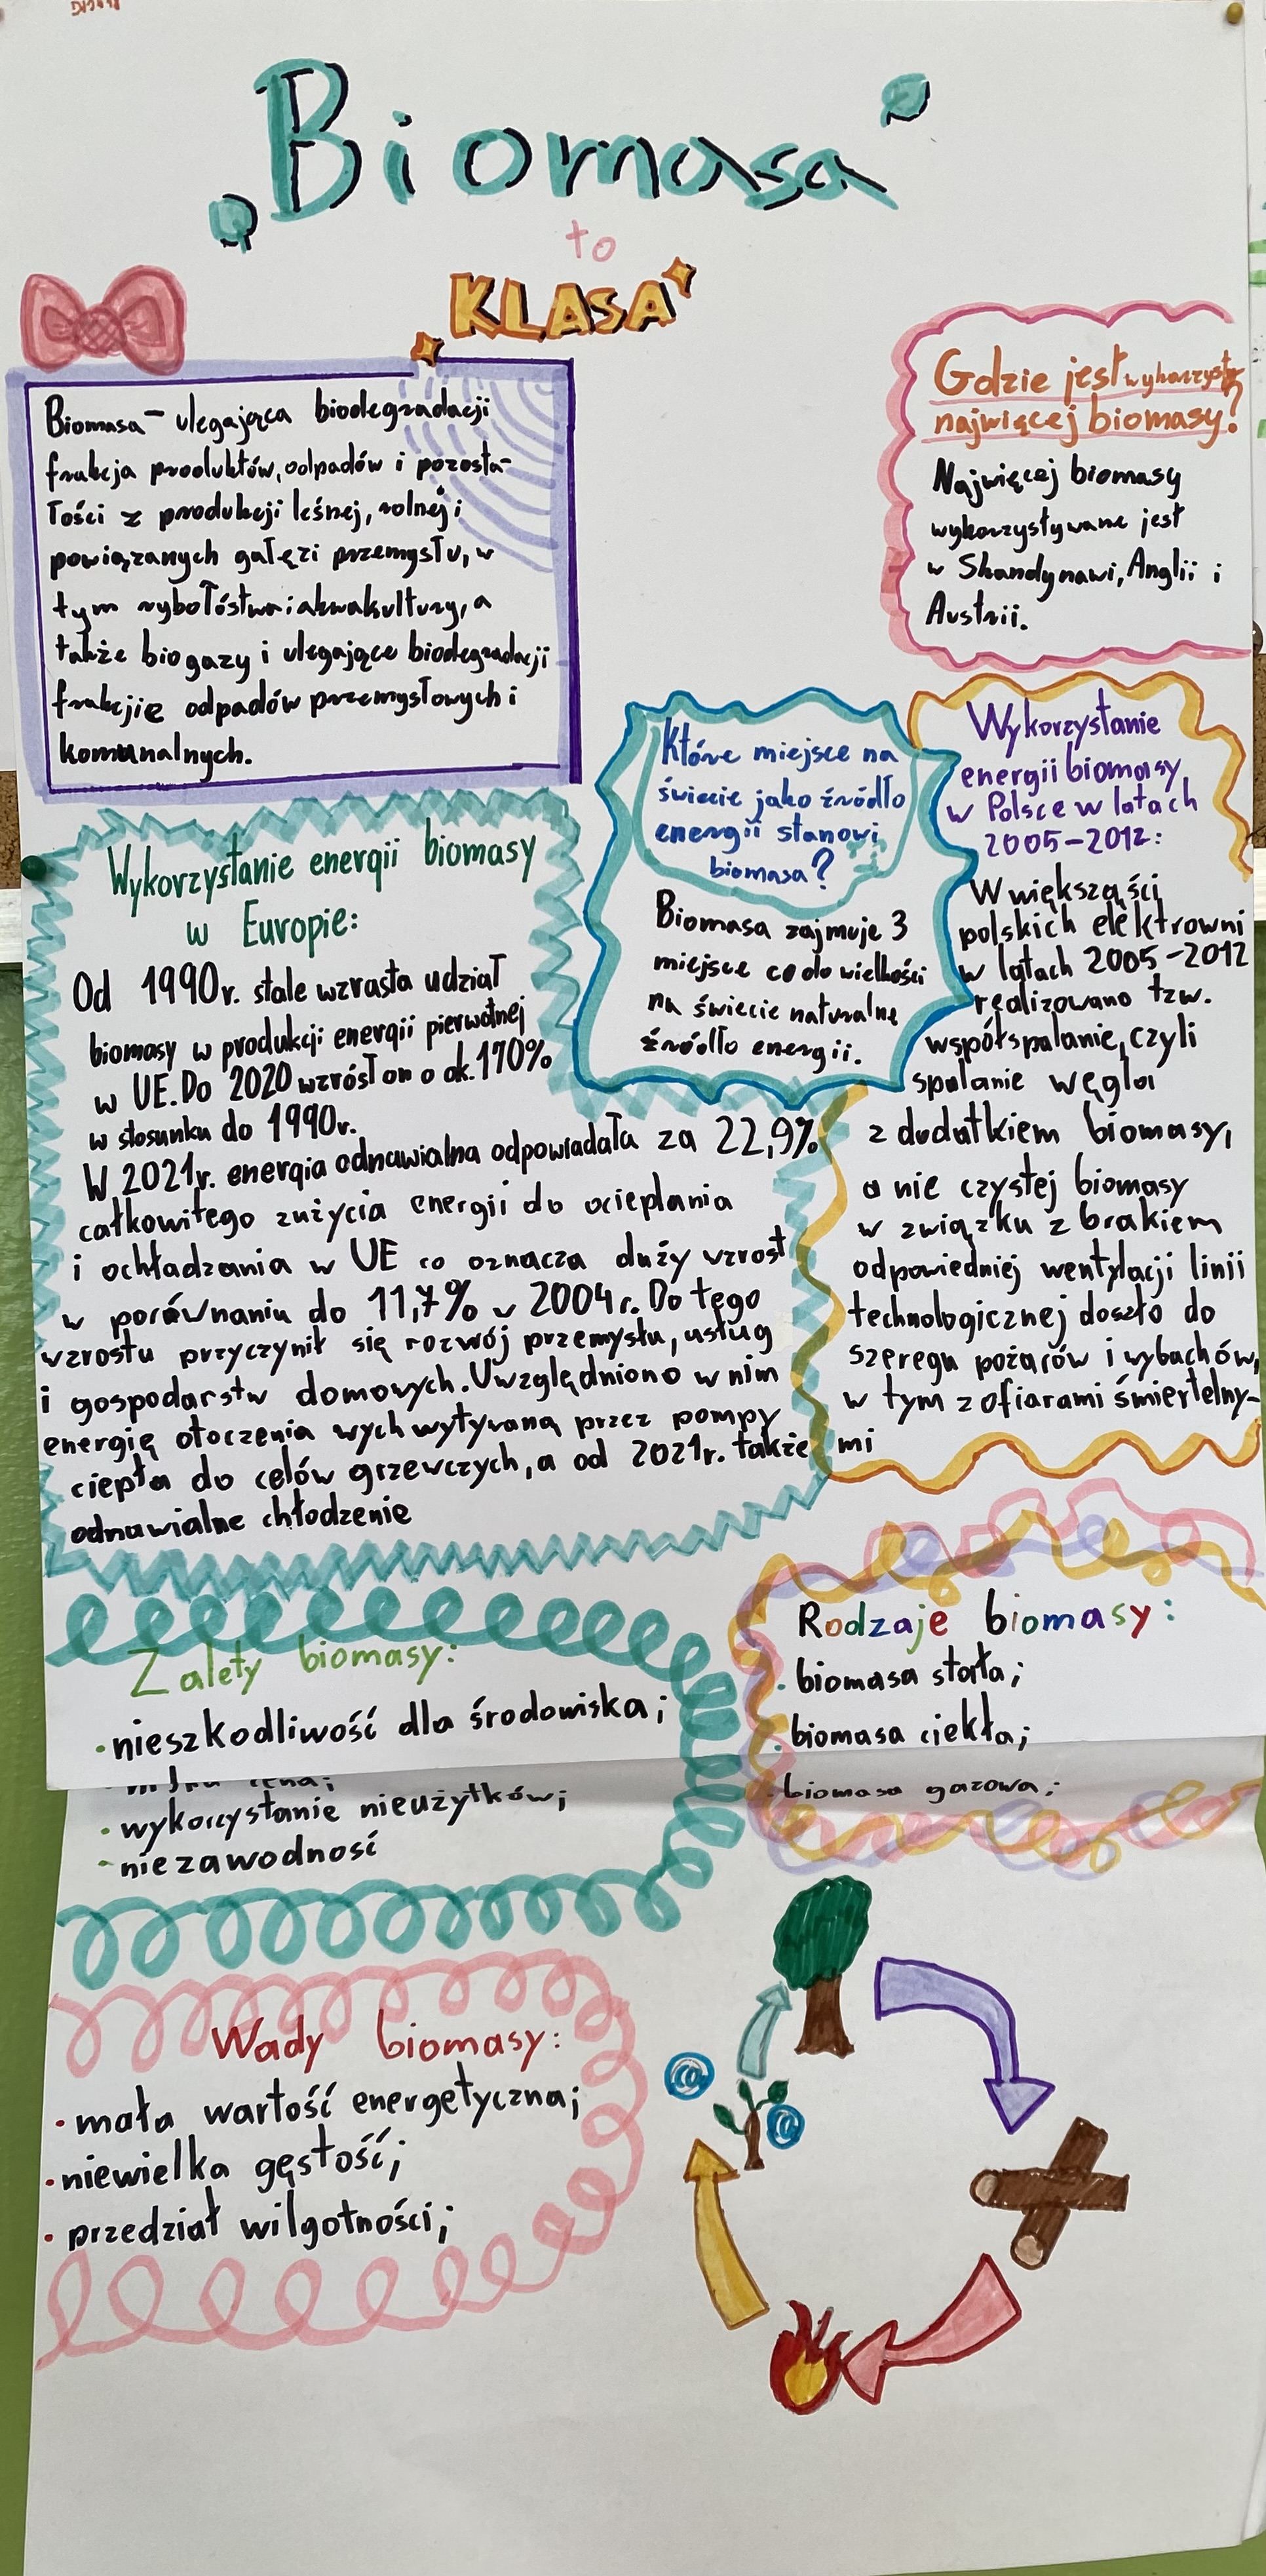 „Biomasa"
to
KLASA
Biomasa – ulegająca biodegradacji
frakcja produktów, odpadów i pozosta-
łości z produkcji leśnej, rolnej i
powiązanych gałęzi przemysłu, w
tym rybołóstwa i akwakultury, a
także biogazy i ulegające biodegradacji
frakcjie odpadów przemysłowych i
komunalnych.
Gdzie jest wykorzyst
najwięcej biomasy?
Najwięcej biomasy
wykorzystywane jest
w Skandynawi, Anglii i
Austrii.
Które miejsce na
świecie jako źródło
energii stanowi
biomasa?
Biomasa zajmuje 3
miejsce co do wielkości
na świecie naturalne
źródło energii.
Wykorzystanie
energii biomasy
w Polsce w latach
2005-2012:
W większości
polskich elektrowni
w latach 2005-2012
realizowano tzw.
współspalanie, czyli
spalanie węgla
z dodatkiem biomasy,
a nie czystej biomasy
w związku z brakiem
odpowiedniej wentylacji linii
technologicznej doszło do
szeregu pożarów i wybuchów,
w tym z ofiarami śmiertelny-
mi
Wykorzystanie energii biomasy
w Europie:
Od 1990r. stale wzrasta udział
biomasy w produkcji energii pierwotnej
w UE. Do 2020 wzrósł on o ok. 170%
w stosunku do 1990r.
W 2021r. energia odnawialna odpowiadała za 22,9%
całkowitego zużycia energii do ocieplania
i ochładzania w UE co oznacza duży wzrost
w porównaniu do 11,7% w 2004r. Do tego
wzrostu przyczynił się rozwój przemysłu, usług
i gospodarstw domowych. Uwzględniono w nim
energię otoczenia wychwytywaną przez pompy
ciepła do celów grzewczych, a od 2021r. także
odnawialne chłodzenie
Zalety biomasy:
· nieszkodliwość dla środowiska;
cena;
· wykorzystanie nieużytków;
· niezawodność
Rodzaje biomasy:
· biomasa stała;
· biomasa ciekła;
· biomasa gazowa;
Wady biomasy:
· mała wartość energetyczna;
· niewielka gęstość;
· przedział wilgotności;